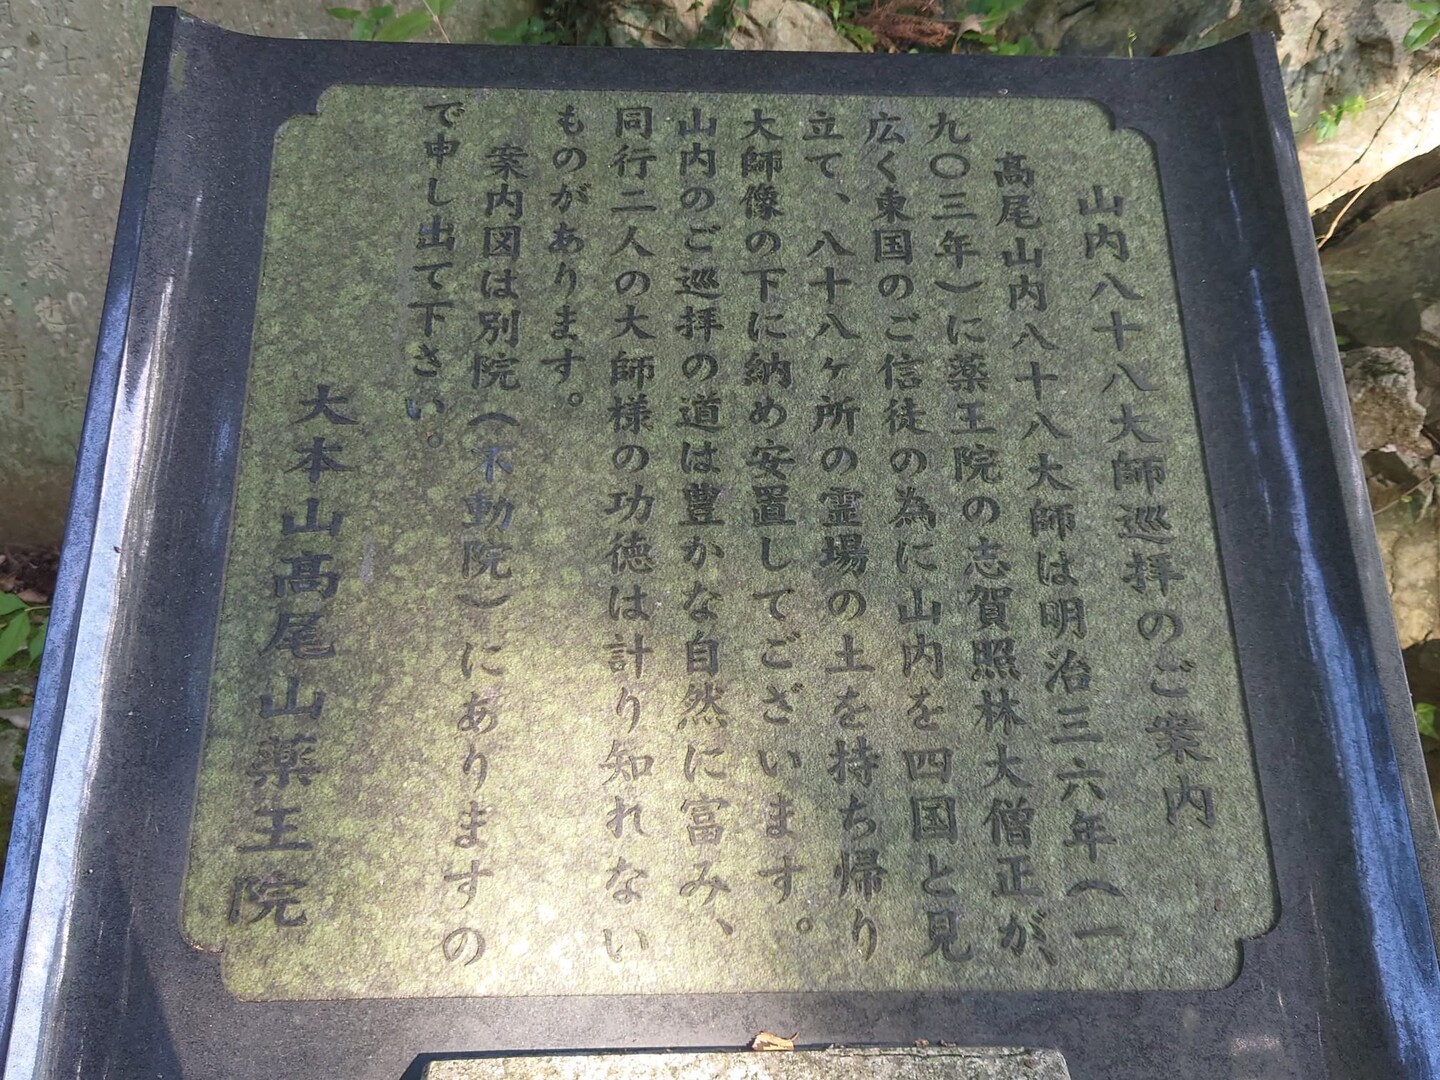 山内八十八大師巡拝のご案内
高尾山内八十八大師は明治三六年（一
九〇三年）に薬王院の志賀照林大僧正が、
広く東国のご信徒の為に山内を四国と見
立て、八十八ヶ所の霊場の土を持ち帰り
大師像の下に納め安置してございます。
山内のご巡拝の道は豊かな自然に富み、
同行二人の大師様の功徳は計り知れない
ものがあります。
案内図は別院（不動院）にありますの
で申し出て下さい。
大本山高尾山薬王院